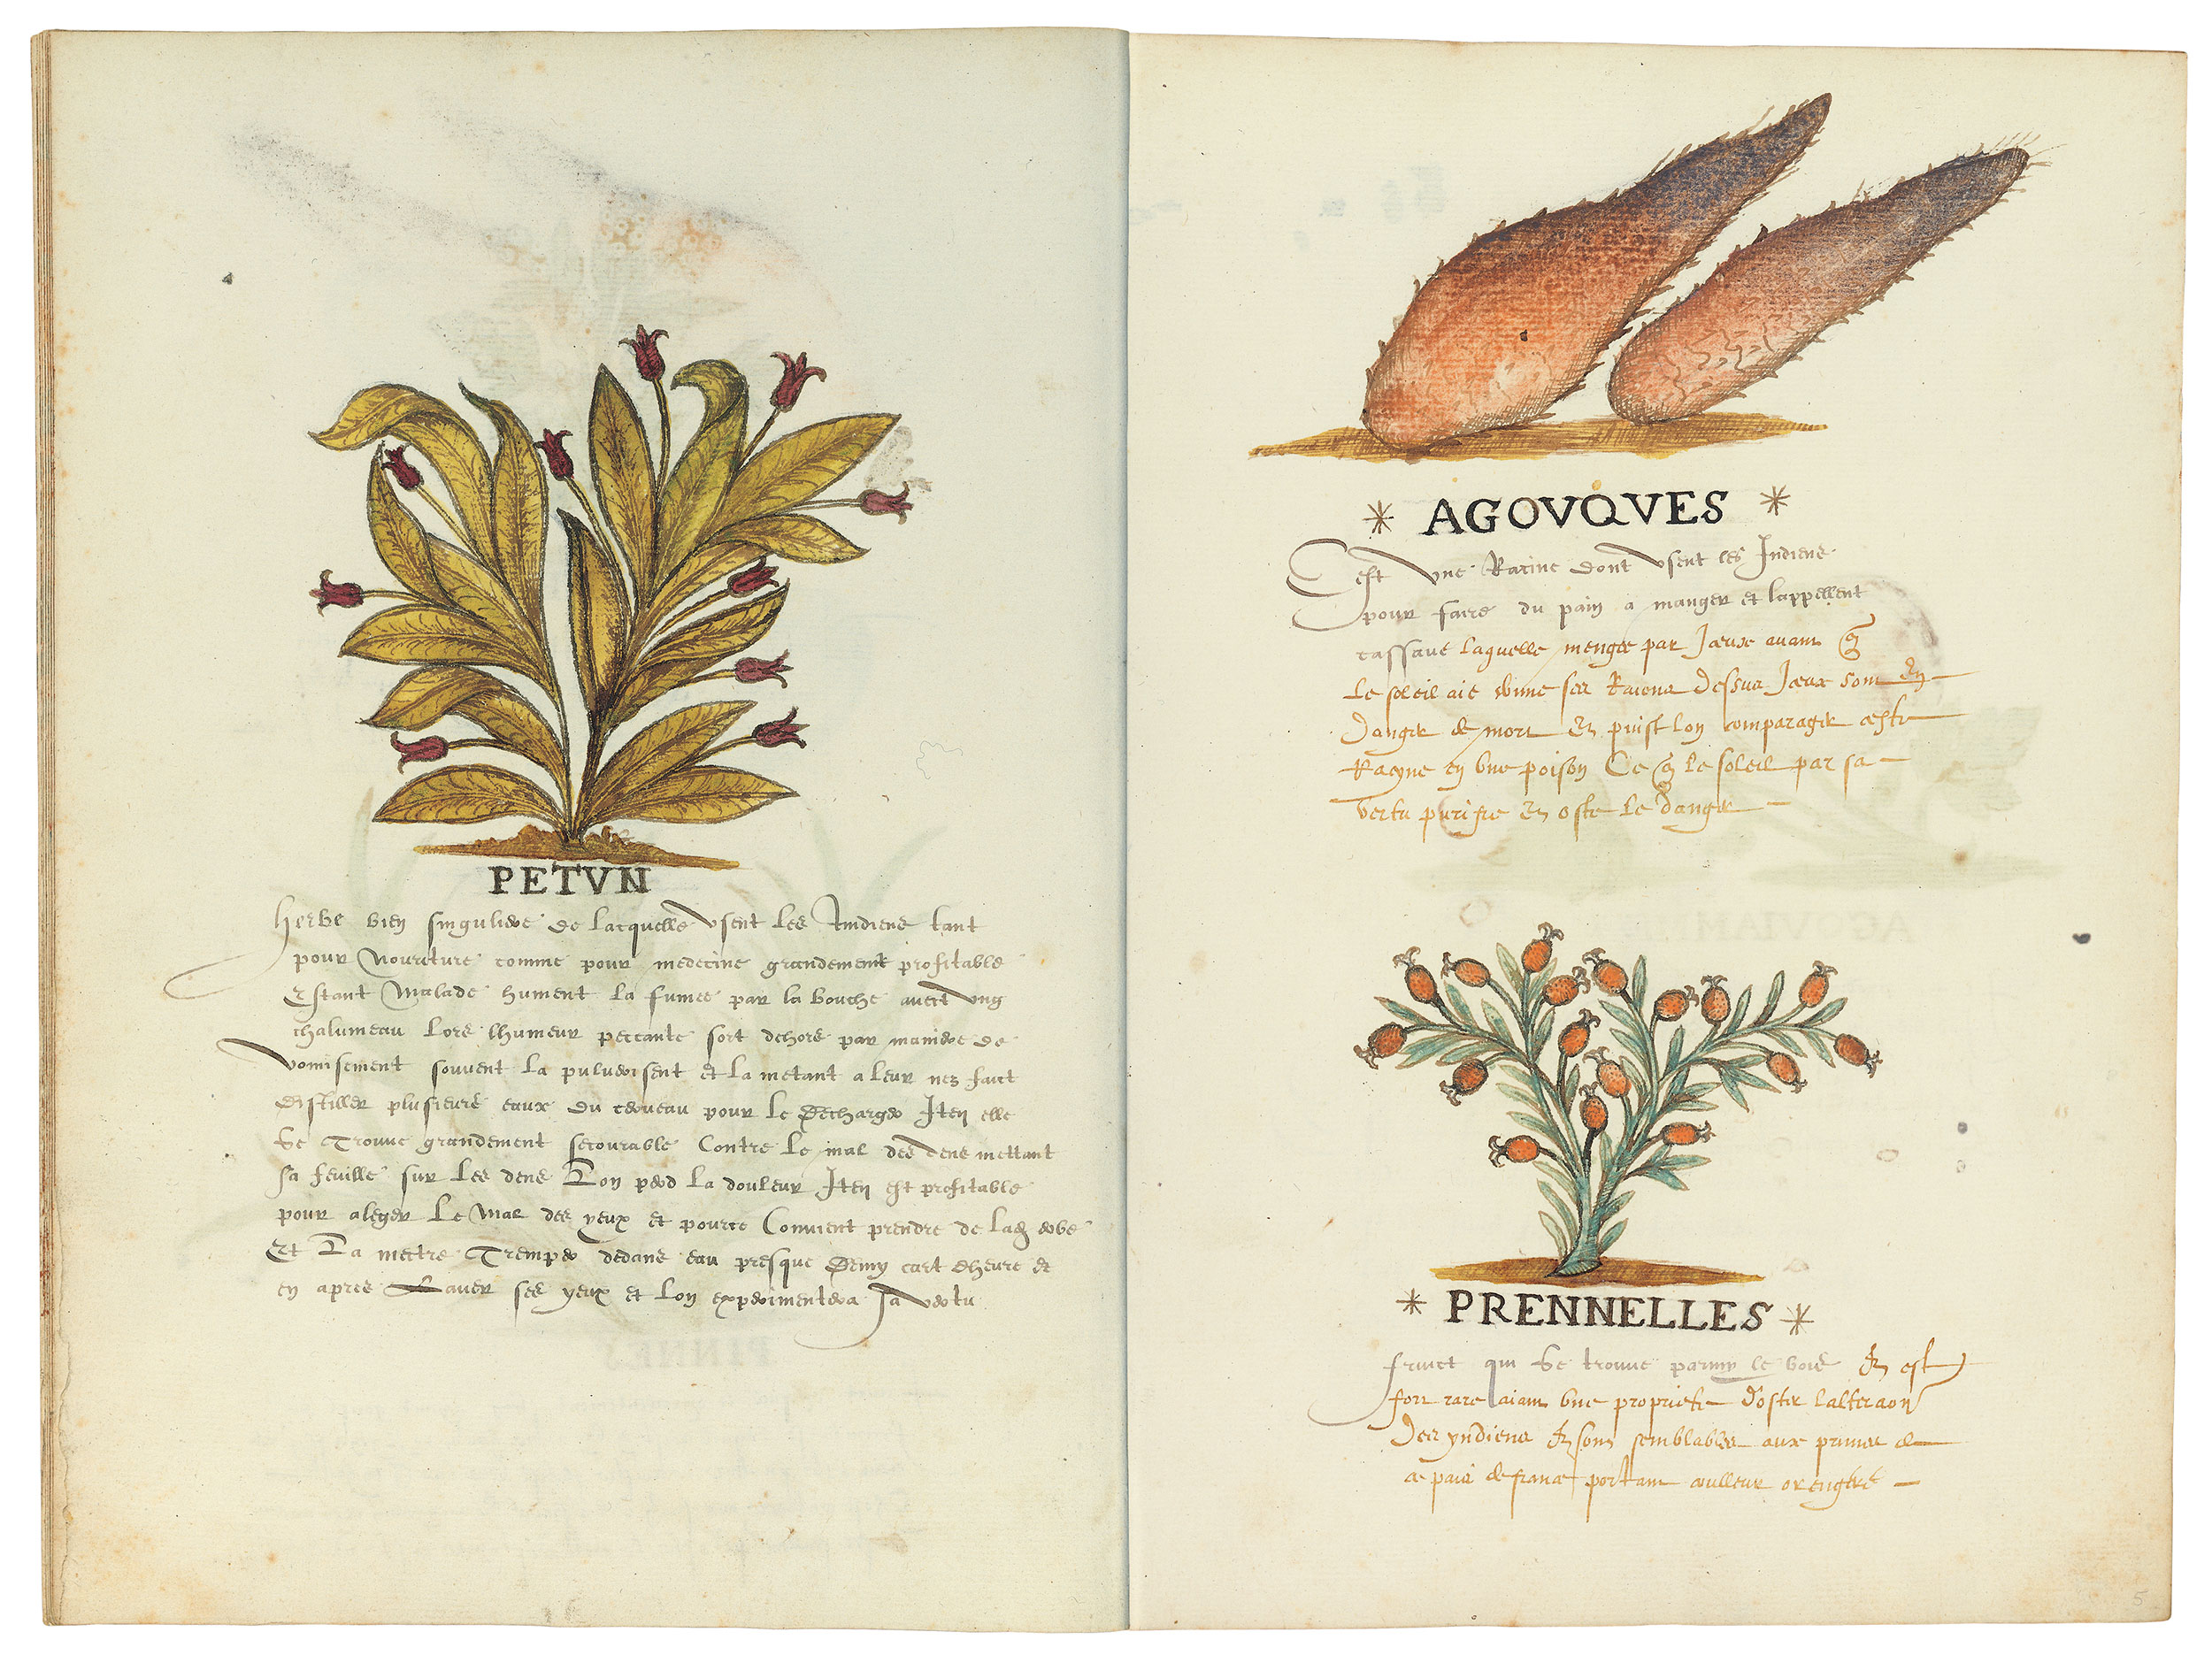 PETVN
herbe bien singuliere de lacquelle usent les Indiens tant
pour nouriture comme pour medecine grandement profitable
Estant malade hument la fumee par la bouche avect ung
chalumeau lors lhumeur peccante sort dehors par maniere de
vomisement souvent la pulverisent et la metant a leur nez faict
distiller plusieurs eaux du cerveau pour le decharger Iten elle
se trouve grandement secourable contre le mal des dens mettant
sa feuille sur les dens lon perd la douleur Iten est profitable
pour aleger le mal des yeux et pource convient prendre de lad herbe
Et la mettre tremper dedans eau presque demy cart dheure et
en apres laver ses yeux et lon experimentera sa vertu
* AGOVQVES *
Cest une Racine dont usent les Indiens
pour faire du pain a manger et lappellent
cassave laquelle mengee par Iceux avant q
le soleil aie donne ses Raions dessus Iceux sont En
danger de mort Et puist lon comparager ceste
Racyne en une poison Ce q le soleil par sa
vertu purifie Et oste le danger
* PRENNELLES *
fruict qui se trouve parmy le bois Et est
fort rare aiant une propriete doster lalteraon
des yndiens Et sont semblables aux prunes de
ce pais de france portant coulleur orengere
5